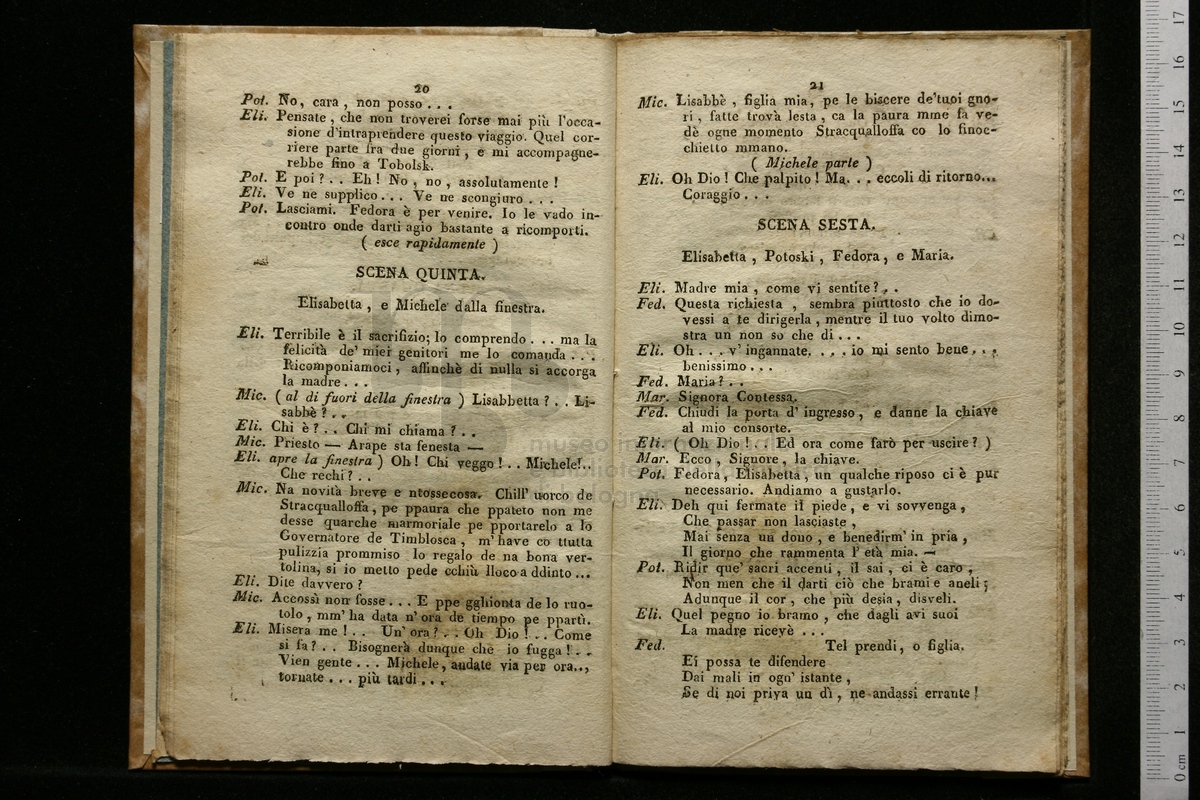 20
Pot. No, cara, non posso . . .
Eli. Pensate, che non troverei forse mai più l'occa-
sione d'intraprendere questo viaggio. Quel cor-
riere parte fra due giorni, e mi accompagne-
rebbe fino a Tobolsk.
Pot. E poi? . . Eh! No, no, assolutamente!
Eli. Ve ne supplico . . . Ve ne scongiuro . . .
Pot. Lasciami. Fedora è per venire. Io le vado in-
contro onde darti agio bastante a ricomporti.
( esce rapidamente )
SCENA QUINTA.
Elisabetta, e Michele dalla finestra.
Eli. Terribile è il sacrifizio; lo comprendo . . . ma la
felicità de' miei genitori me lo comanda . . .
Ricomponiamoci, affinchè di nulla si accorga
la madre . . .
Mic. ( al di fuori della finestra ) Lisabbetta? . . Li-
sabbè? . .
Eli. Chi è? . . Chi mi chiama? . .
Mic. Priesto — Arape sta fenesta —
Eli. apre la finestra ) Oh! Chi veggo! . . Michele! . .
Che rechi? . .
Mic. Na novità breve e ntossecosa. Chill' uorco de
Stracqualloffa, pe ppaura che ppateto non me
desse quarche marmoriale pe pportarelo a lo
Governatore de Timblosca, m' have co ttutta
pulizzia prommiso lo regalo de na bona ver-
tolina, si io metto pede cchiù lloco a ddinto ...
Eli. Dite davvero?
Mic. Accossì non fosse . . . E ppe gghionta de lo ruo-
tolo, mm' ha data n' ora de tiempo pe ppartì.
Eli. Misera me! . . Un' ora? . . Oh Dio! . . Come
si fa? . . Bisognerà dunque che io fugga! . .
Vien gente . . . Michele, andate via per ora..,
tornate . . . più tardi . . .
21
Mic. Lisabbè, figlia mia, pe le biscere de'tuoi gno-
ri, fatte trovà lesta, ca la paura mme fa ve-
dè ogne momento Stracqualloffa co lo finoc-
chietto mmano.
( Michele parte )
Eli. Oh Dio! Che palpito! Ma. . . eccoli di ritorno...
Coraggio . . .
SCENA SESTA.
Elisabetta, Potoski, Fedora, e Maria.
Eli. Madre mia, come vi sentite? . .
Fed. Questa richiesta, sembra piuttosto che io do-
vessi a te dirigerla, mentre il tuo volto dimo-
stra un non so che di . . .
Eli. Oh . . . v' ingannate. . . . io mi sento bene . . .
benissimo . . .
Fed. Maria? . .
Mar. Signora Contessa.
Fed. Chiudi la porta d' ingresso, e danne la chiave
al mio consorte.
Eli. ( Oh Dio! . . Ed ora come farò per uscire? )
Mar. Ecco, Signore, la chiave.
Pot. Fedora, Elisabetta, un qualche riposo ci è pur
necessario. Andiamo a gustarlo.
Eli. Deh qui fermate il piede, e vi sovvenga,
Che passar non lasciaste,
Mai senza un dono, e benedirm' in pria,
Il giorno che rammenta l' età mia. —
Pot. Ridir que' sacri accenti, il sai, ci è caro,
Non men che il darti ciò che brami e aneli;
Adunque il cor, che più desia, disveli.
Eli. Quel pegno io bramo, che dagli avi suoi
La madre ricevè . . .
Fed. Tel prendi, o figlia.
Ei possa te difendere
Dai mali in ogn' istante,
Se di noi priva un dì, ne andassi errante!